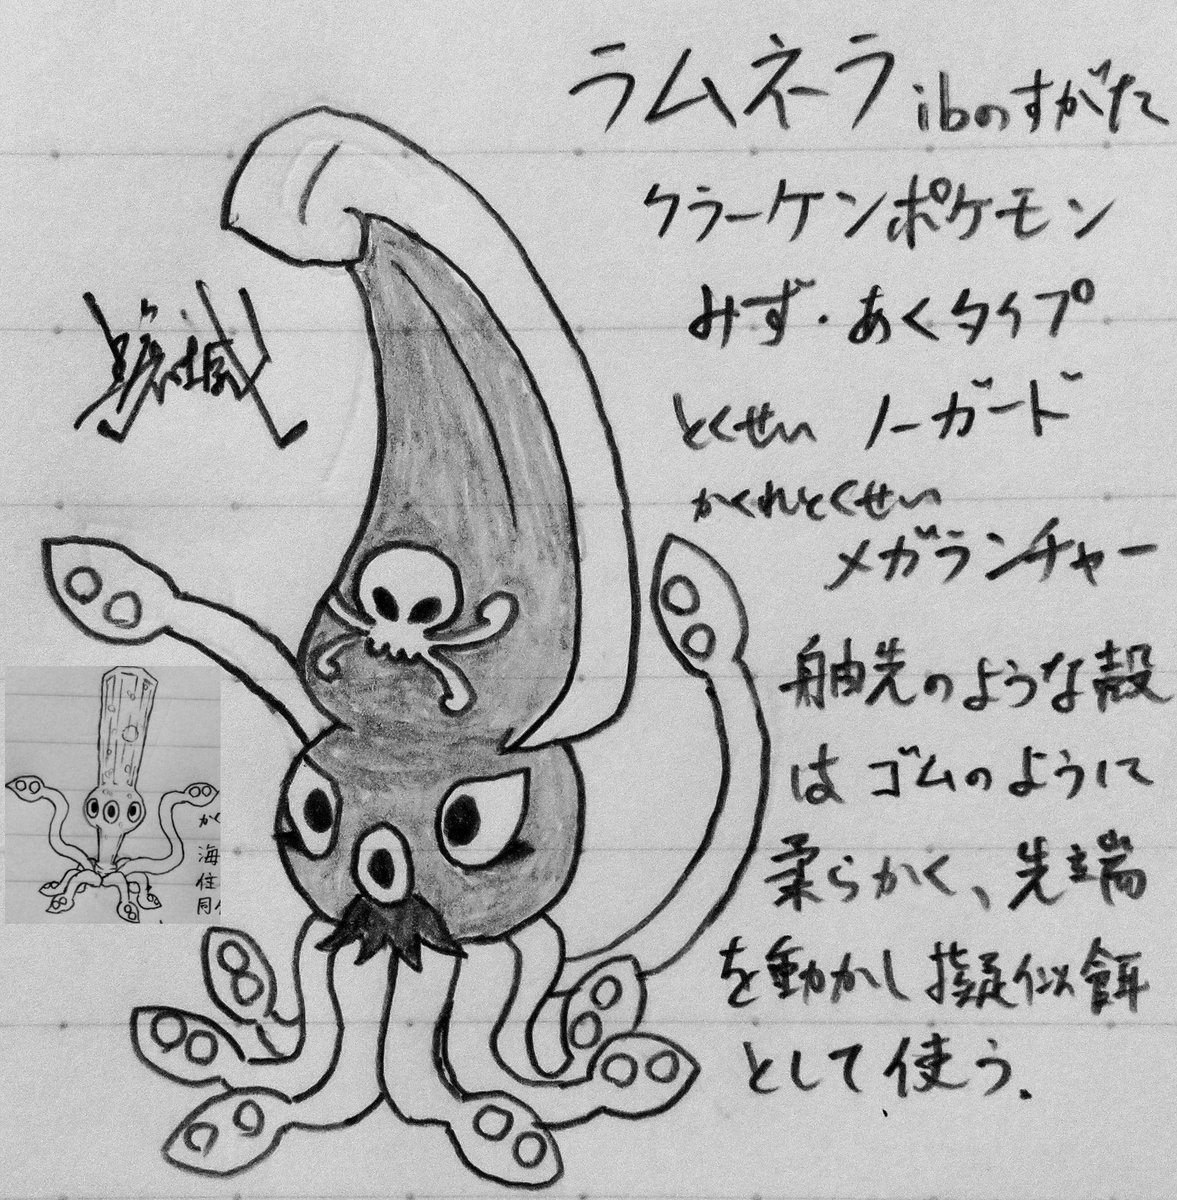 ラムネーラ ibのすがた
クラーケンポケモン
みず・あくタイプ
とくせい ノーガード
かくれとくせい
メガランチャー
舳先のような殻
は ゴムのように
柔らかく、先端
を動かし擬似餌
として使う.
か
海
住